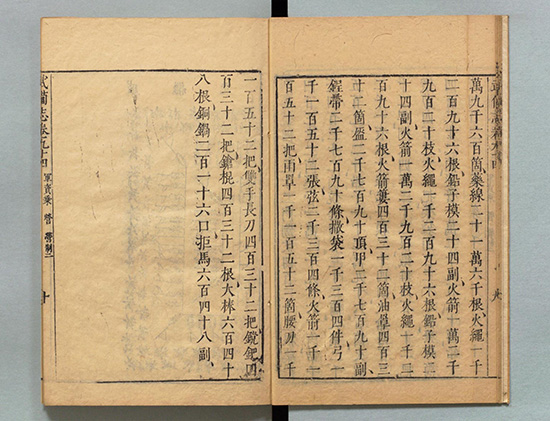 萬九千六百箇藥線二十一萬六千根火繩一千
二百九十六根鉛子模二十四副火箭一萬二千
九百二十枝火繩一千二百九十六根鉛子模二
十四副火箭一萬二千九百二十枝火繩一千二
百九十六根火箭簍四百三十二箇油單四百三
十二箇盔二千七百九十頂甲二千七百九十副
帶二千七百九十條撒袋一千三百四件弓一
千一百五十二張弦二千三百四條火箭一千一
百五十二把雨單一千一百五十二箇腰刀一千
一百五十二把雙手長刀四百三十二把钂鈀四
百三十二把鎗棍四百三十二根大棒六百四十
八根銅鍋二百一十六口拒馬六百四十八副
武備志卷九十四 軍資乘 營 營制二 十